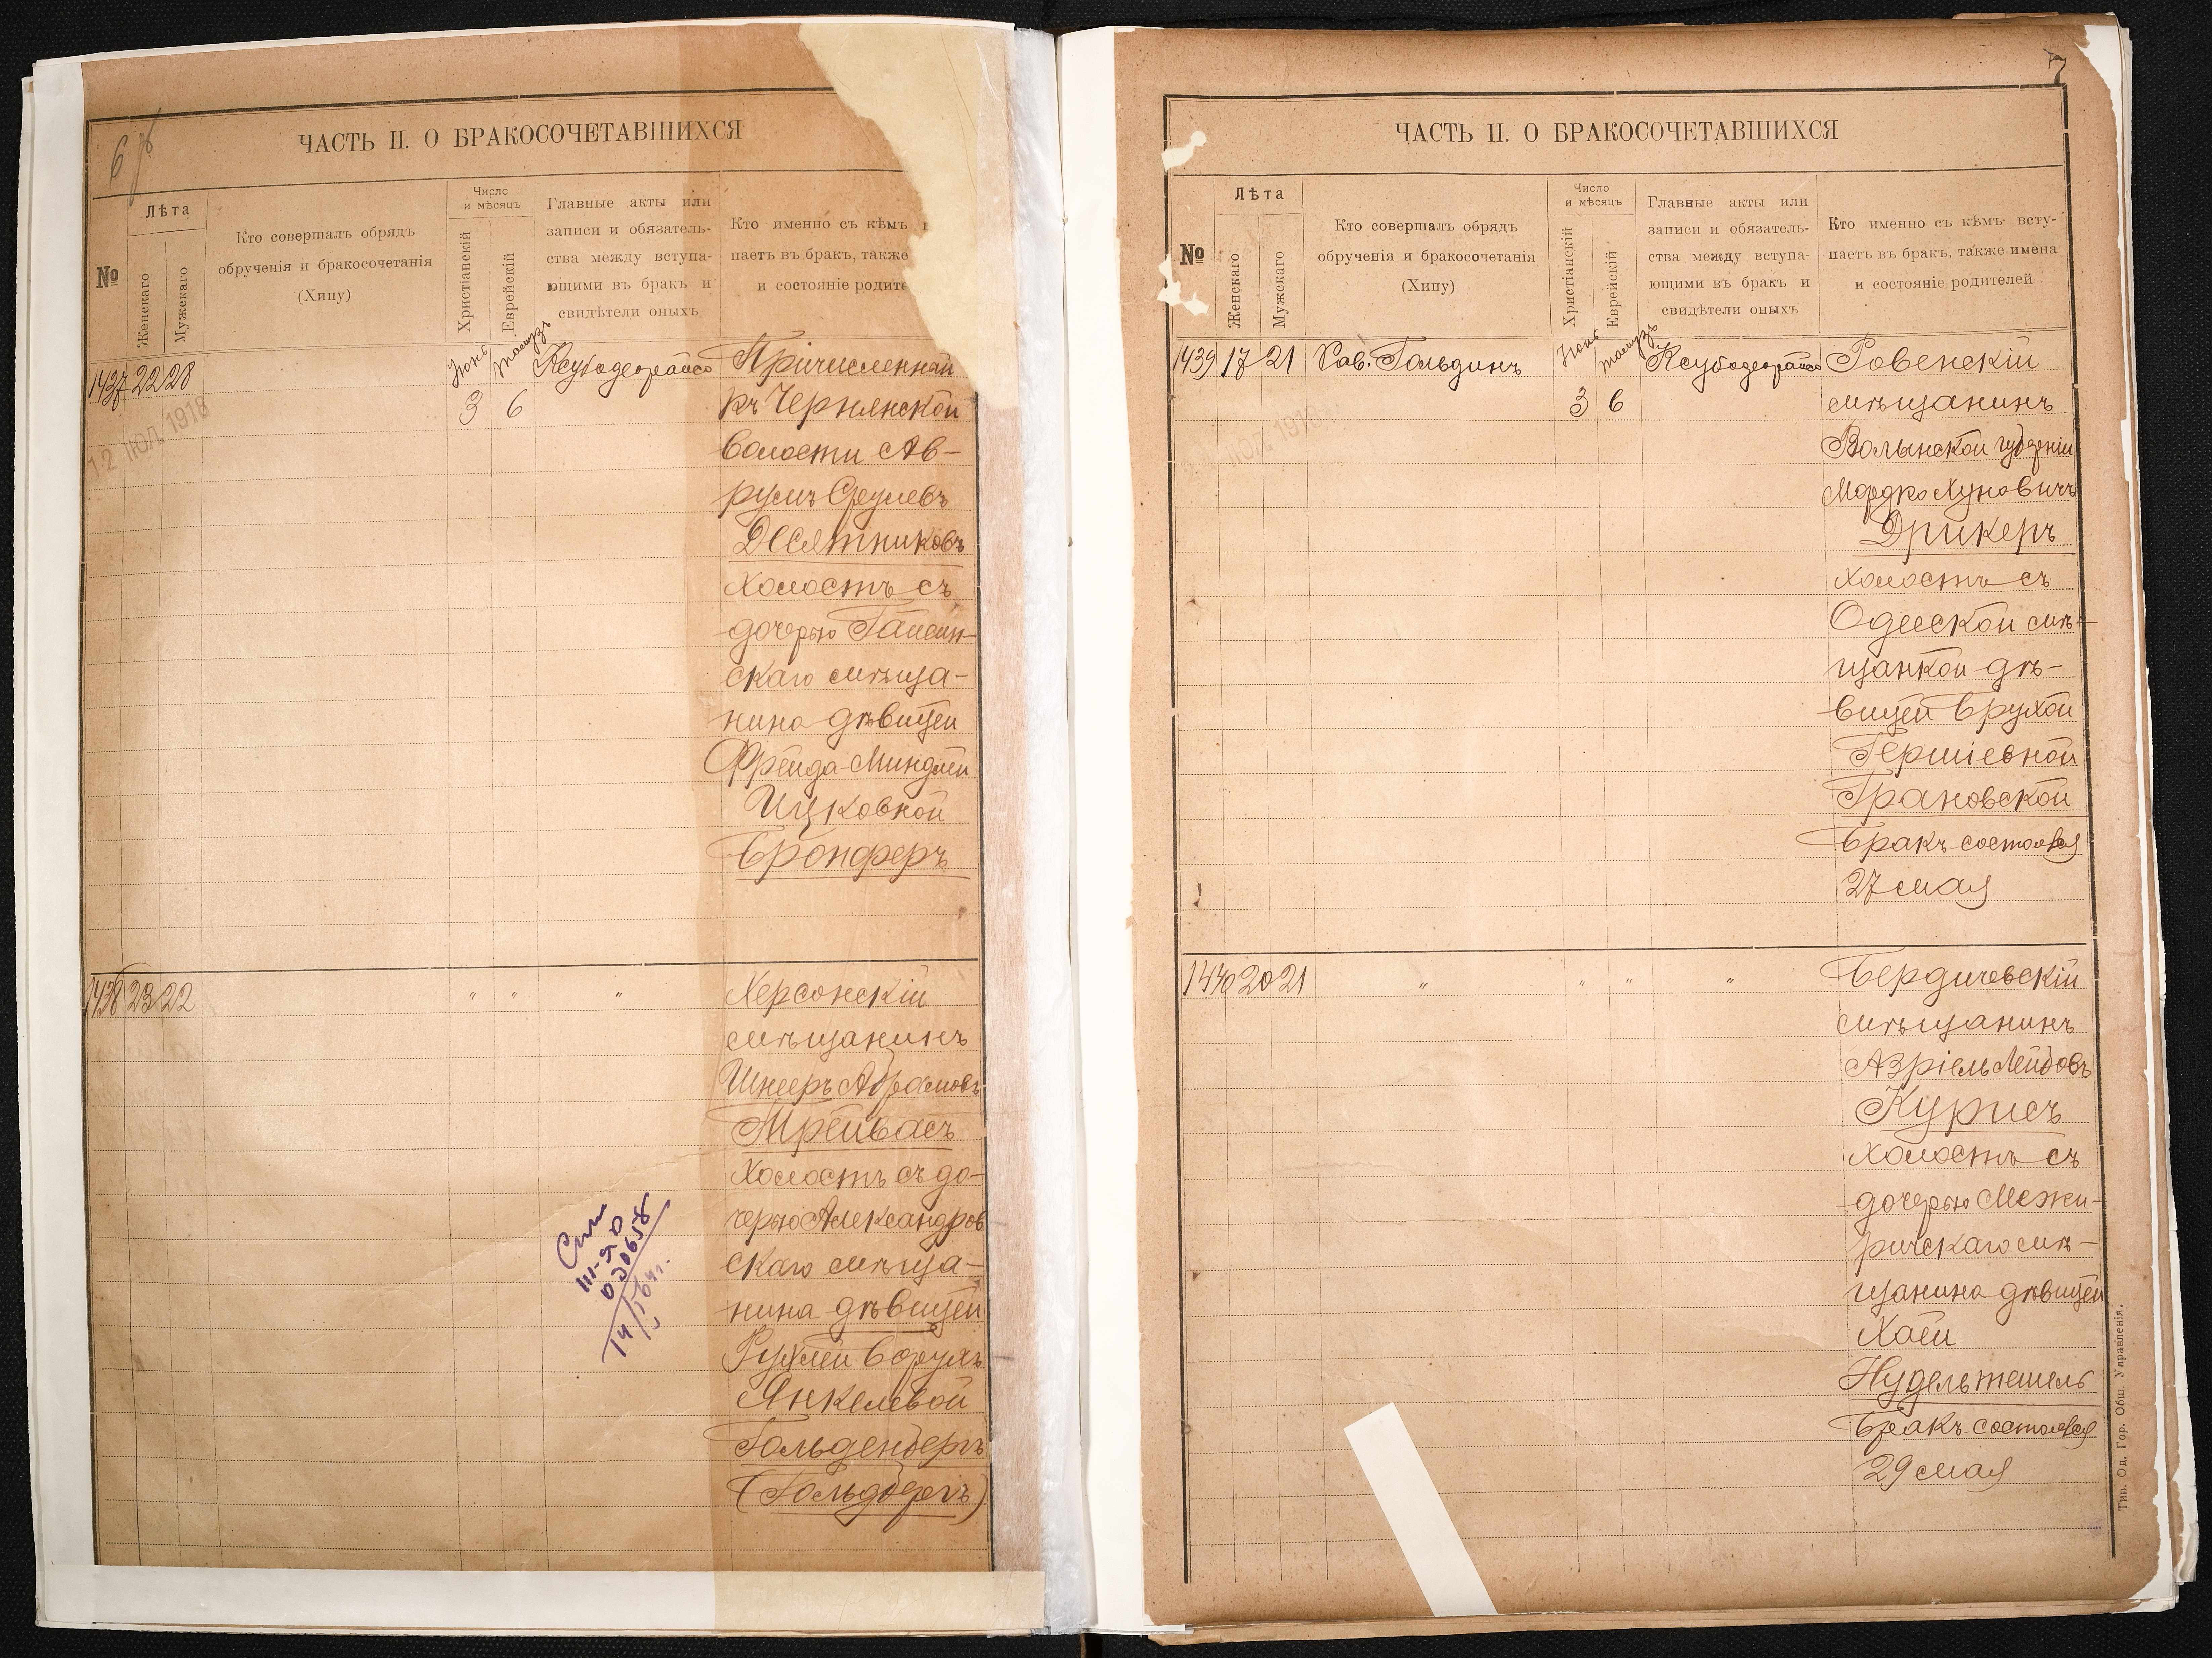 6
ЧАСТЬ II. О БРАКОСОЧЕТАВШИХСЯ
№
Лѣта
Женскаго
Мужскаго
Кто совершалъ обрядъ
обрученія и бракосочетанія
(Хипу)
Число
и мѣсяцъ
Христіанскій
Еврейскій
Главные акты или
записи и обязатель-
ства между вступа-
ющими въ бракъ и
свидѣтели оныхъ
Кто именно съ кѣмъ
паетъ въ бракъ, также
и состояніе родите
1437 22 28
Іюнь
3
Тамузъ
6
Причисленный
къ Чернянской
волости Ав-
румъ Срулевъ
Десятниковъ
холостъ съ
дочерью Гайсин-
скаго мѣща-
нина дѣвицей
Фрейда-Миндлей
Ицковной
Бронферъ
12 ІЮЛ. 1918
1438 23 22
" " "
Херсонскій
мѣщанинъ
Шнееръ Абрамовъ
Трейвасъ
холостъ съ до-
черью Александров
скаго мѣща-
нина дѣвицей
Рухлей Борухъ
Янкелевой
Гольденбергъ
(Гольдбергъ)
III-ЯД
020658
7
ЧАСТЬ II. О БРАКОСОЧЕТАВШИХСЯ
№
Лѣта
Женскаго
Мужскаго
Кто совершалъ обрядъ
обрученія и бракосочетанія
(Хипу)
Число
и мѣсяцъ
Христіанскій
Еврейскій
Главные акты или
записи и обязатель-
ства между вступа-
ющими въ бракъ и
свидѣтели оныхъ
Кто именно съ кѣмъ всту-
паетъ въ бракъ, также имена
и состояніе родителей
1439 17 21
Рав. Гольдинъ
Іюнь
3
Тамузъ
6
Ровенскій
мѣщанинъ
Волынской губерніи
Мордко Хуновичъ
Дрикеръ
холостъ съ
Одесской мѣ-
щанкой дѣ-
вицей Брухой
Гершіевной
Грановской
Бракъ состоялся
27 мая
1440 20 21
" " " "
Бердичевскій
мѣщанинъ
Азріель Лейбовъ
Курисъ
холостъ съ
дочерью Межи-
ричскаго мѣ-
щанина дѣвицей
Хаей
Нудельтешель
Бракъ состоялся
29 мая
Тип. Од. Гор. Общ. Управленія.